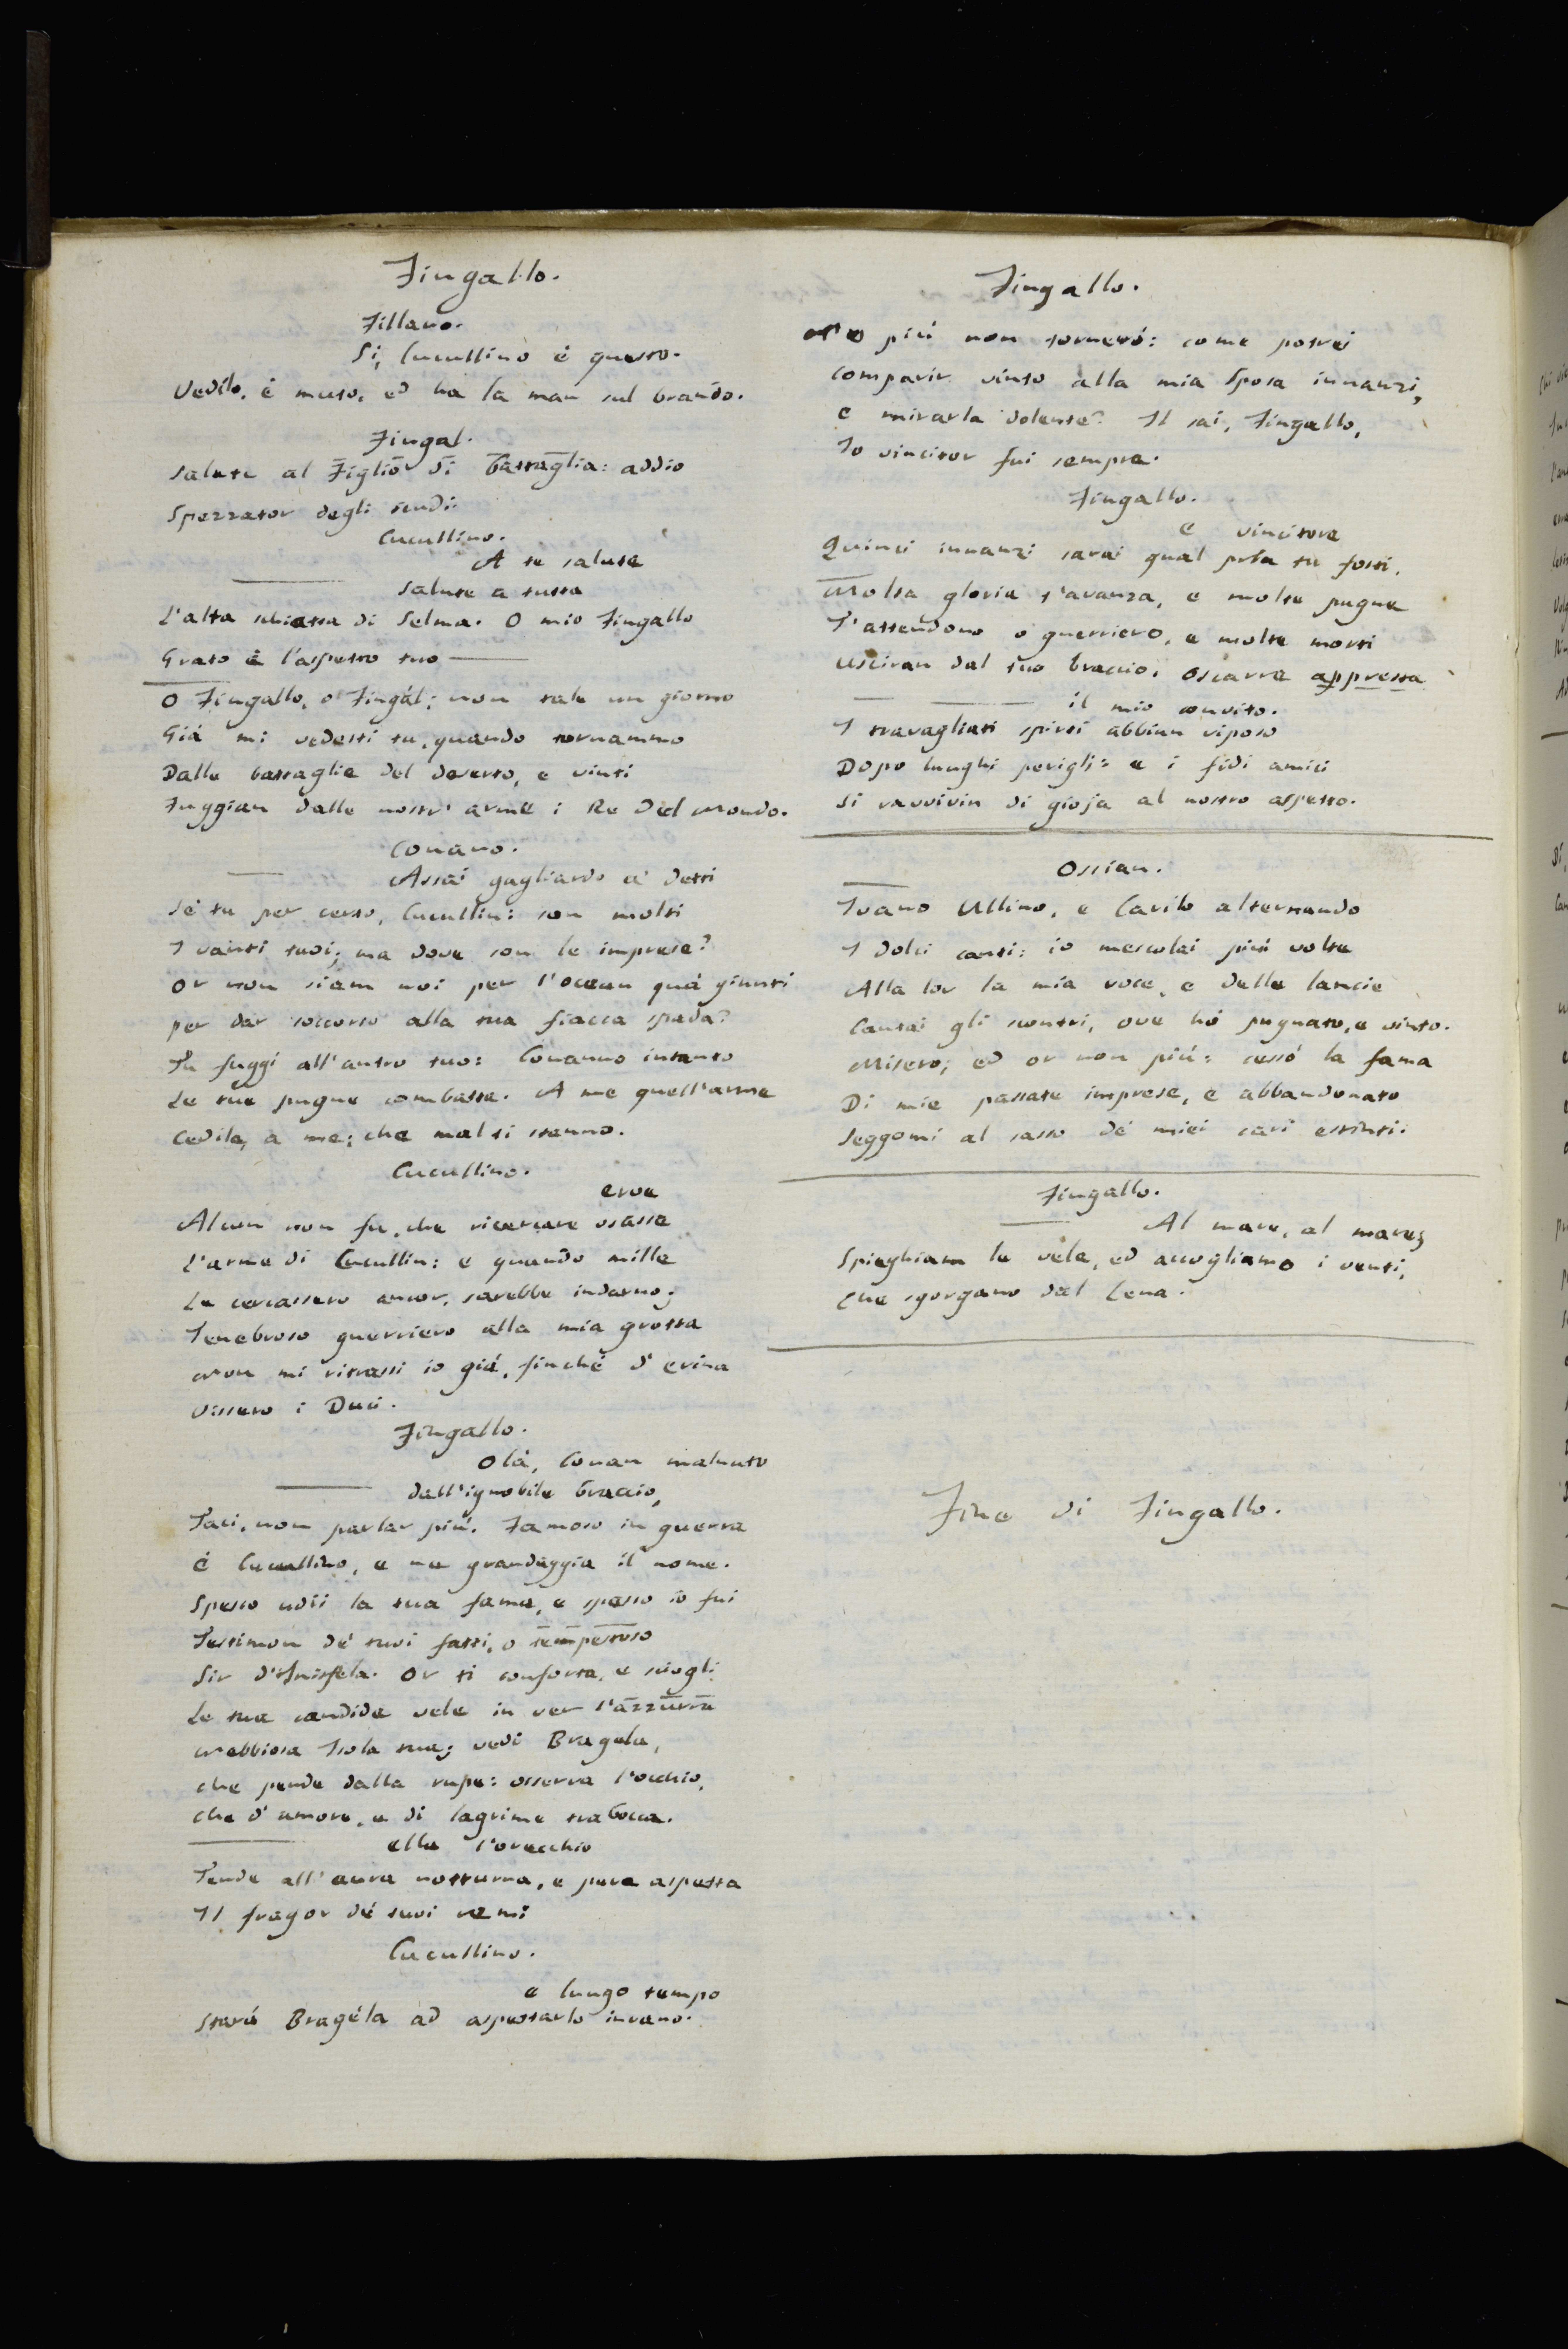 Fingallo.
Fillano.
Si, Cucullino è questo.
Vedilo, è muto, ed ha la man sul brando.
Fingal.
salute al Figlio di battaglia: addio
Spezzator degli scudi.
Cucullino.
A te salute
salute a tutta
L'alta schiatta di Selma. O mio Fingallo
Grato è l'aspetto tuo
O Fingallo, o Fingál; non tale un giorno
Giá mi vedesti tu, quando tornammo
Dalle battaglie del deserto, e vinti
Fuggian dalle nostr' arme i Re Del Mondo.
Conano.
Assai gagliardo a' detti
Sè tu per certo, Cucullin: son molti
I vanti tuoi; ma dove son le imprese?
Or non siam noi per l'ocean quá giunti
per dar soccorso alla tua fiacca spada?
Tu fuggi all'antro tuo: Conanno intanto
Le tue pugne combatte. A me quell'arme
Cedile, a me; che mal ti stanno.
Cucullino.
eroe
Alcun non fu, che ricercare osasse
L'arme di Cucullin: e quando mille
Le cercassero ancor, sarebbe indarno;
Tenebroso guerriero alla mia grotta
Non mi ritrassi io giá, finché d' Erina
Vissero i Duci.
Fingallo.
Olà, Conan malnato
dall'ignobile braccio,
Taci, non parlar più. Famoso in guerra
è Cucullino, e ne grandeggia il nome.
Spesso udii la tua fama, e spesso io fui
Testimon de' tuoi fatti, o tempestoso
Sir d'Inisfela. Or ti conforta, e sciogli
Le tue candide vele in ver l'azzurra
Nebbiosa Isola tua; vedi Bragela,
che pende dalla rupe: osserva l'occhio,
che d' amore, e di lagrime trabocca.
ella l'orecchio
Tende all'aura notturna, e pure aspetta
Il fragor dé tuoi remi
Cucullino.
e lungo tempo
Stará Bragéla ad aspettarlo invano.
Fingallo.
No più non torneró: come potrei
comparir vinto alla mia Sposa innanzi,
e mirarla dolente? Il sai, Fingallo,
Io vincitor fui sempre.
Fingallo.
e vincitore
Quinci innanzi sarai qual pria tu fosti.
Molta gloria t'avanza, e molte pugne
T'attendono o guerriero, e molte morti
Usciran dal tuo braccio. Oscarre appresta
il mio convito.
I travagliati spirti abbian riposo
Dopo lunghi perigli: e i fidi amici
Si ravvivin di gioja al nostro aspetto.
Ossian.
Ivano Ullino, e Carilo alternando
I dolci canti: io mescolai più volte
Alla lor la mia voce, e delle lancie
Cantai gli scontri, ove hó pugnato, e vinto.
Misero; ed or non piú: cessó la fama
Di mie passate imprese, e abbandonato
Seggomi al sasso dé miei cari estinti.
Fingallo.
Al mare, al mare;
Spieghiam le vele, ed accogliamo i venti,
Che sgorgano dal Lena.
Fine di Fingallo.